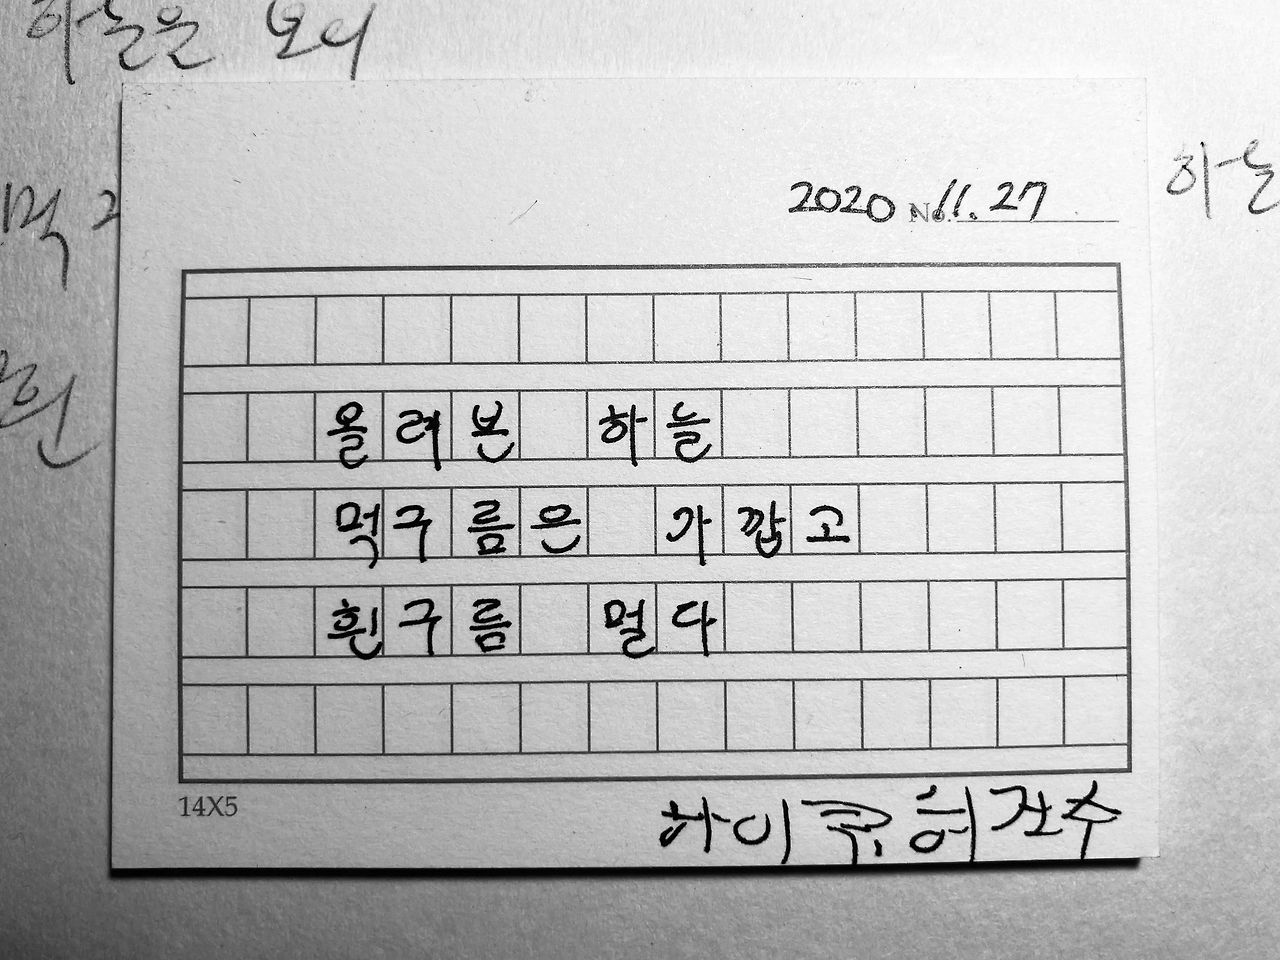 하늘을 보니
하늘
먹구
흰
2020 No. 11. 27
올려본 하늘
먹구름은 가깝고
흰구름 멀다
14X5
하이쿠, 허건수